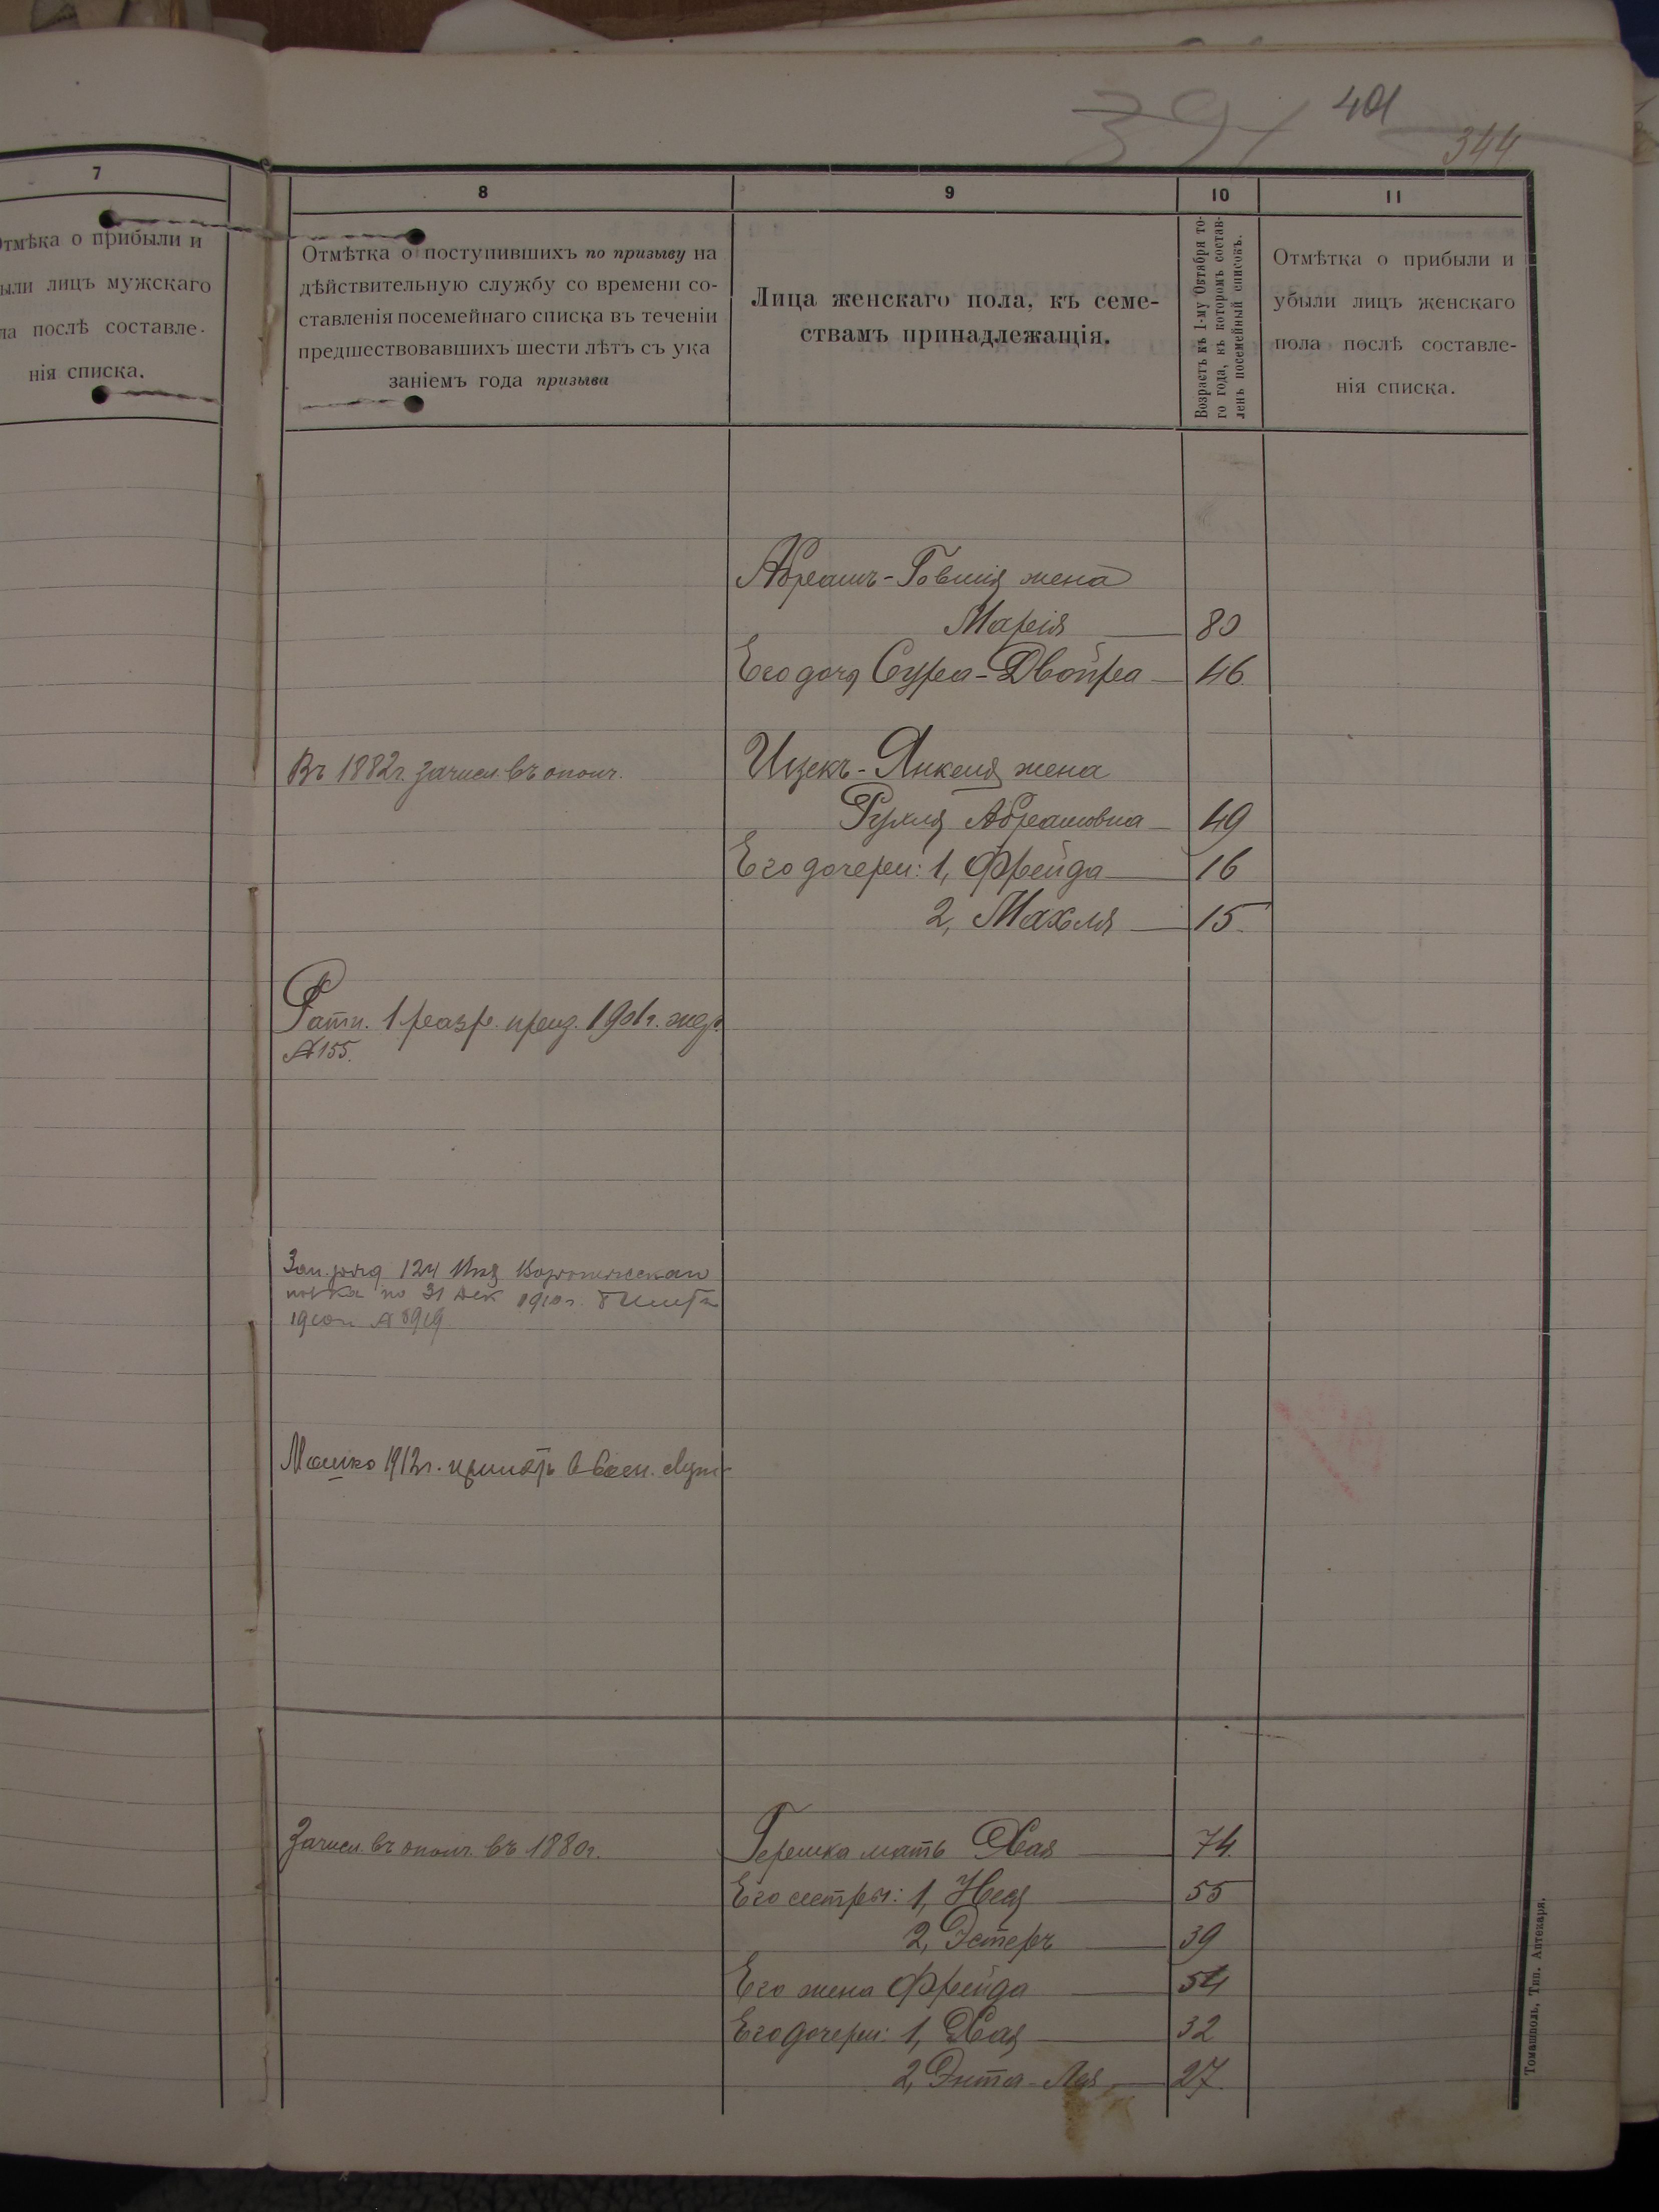 391
401
344
7
8
9
10
11
Отмѣка о прибыли и
были лицъ мужскаго
ла послѣ составле-
нія списка.
Отмѣтка о поступившихъ по призыву на
дѣйствительную службу со времени со-
ставленія посемейнаго списка въ теченіи
предшествовавшихъ шести лѣтъ съ ука
заніемъ года призыва
Лица женскаго пола, къ семе-
ствамъ принадлежащія.
Возрастъ къ 1-му Октября то-
го года, въ которомъ состав-
ленъ посемейный списокъ.
Отмѣтка о прибыли и
убыли лицъ женскаго
пола послѣ составле-
нія списка.
Абрамъ-Говшія жена
Марія 80
Его дочь Сура-Двойра 46
Въ 1882г. зачисл. въ ополч.
Ицекъ-Янкеля жена
Рухля Абрамовна 49
Его дочери: 1, Фрейда 16
2, Махля 15
Ратн. 1 разр. приз. 1901г. жер.
№155.
Зап. ряд 124 Воронежскаго
полка по 31 Дек 1910г.
Мошко 1912г. принятъ в воен. служ
Зачисл. въ ополч. въ 1880г.
Гершка мать Хая 74
Его сестры: 1, Нея 55
2, Эстеръ 39
Его жена Фрейда 54
Его дочери: 1, Хая 32
2, Энта-Лея 27
Томашполь, Тип. Аптекаря.